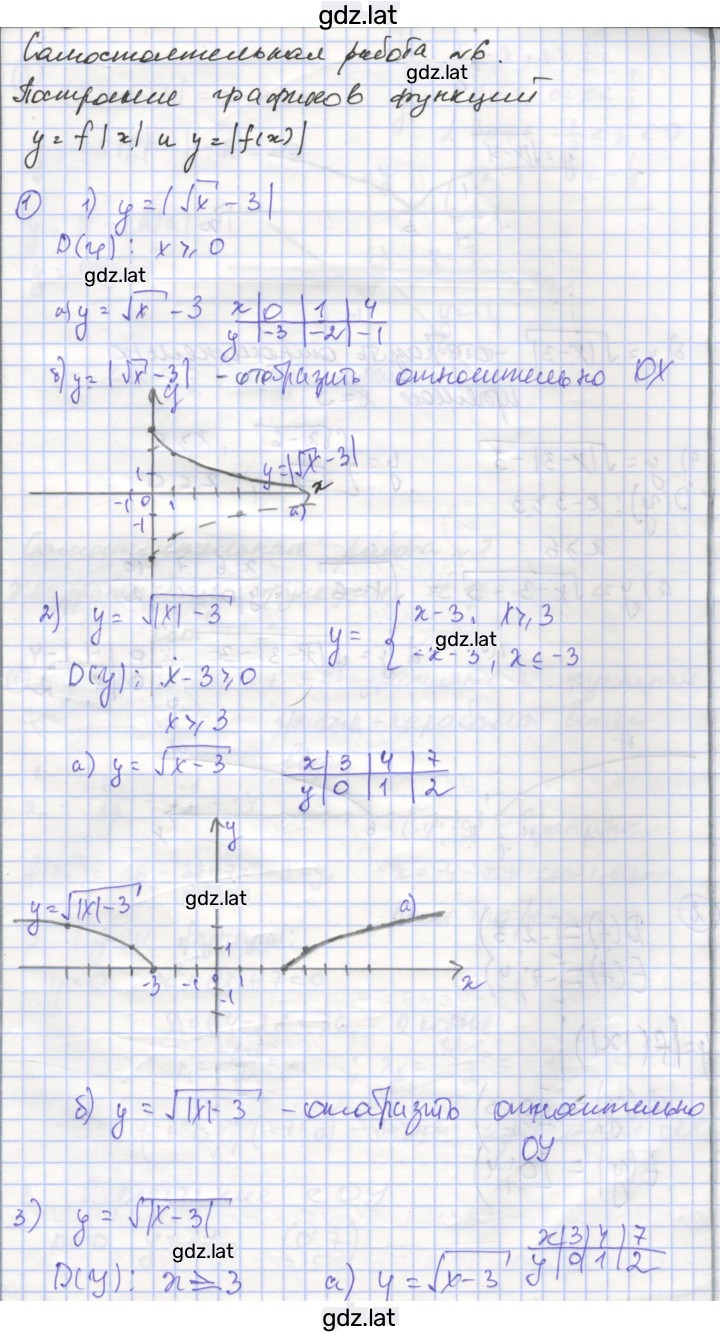 gdz.lat
Самостоятельная работа №6.
gdz.lat
Построение графиков функций
y = f|x| и y = |f(x)|
① 1) y = |√x - 3|
D(y): x ≥ 0
gdz.lat
а) y = √x - 3 x | 0 | 1 | 4
y | -3 | -2 | -1
б) y = |√x - 3| - отобразить относительно OX
y
y = |√x - 3|
1
x
-1 0 1
-1
а)
2) y = √|x| - 3
y = { x - 3, x ≥ 3
gdz.lat
-x - 3, x ≤ -3
D(y): x - 3 ≥ 0
x ≥ 3
а) y = √x - 3 x | 3 | 4 | 7
y | 0 | 1 | 2
y
y = √|x| - 3
gdz.lat
а)
1
-3 -1 0 1
x
-1
б) y = √|x| - 3 - отобразить относительно
OY
3) y = √|x - 3|
gdz.lat
x | 3 | 4 | 7
y | 0 | 1 | 2
D(y): x ≥ 3 а) y = √x - 3
gdz.lat